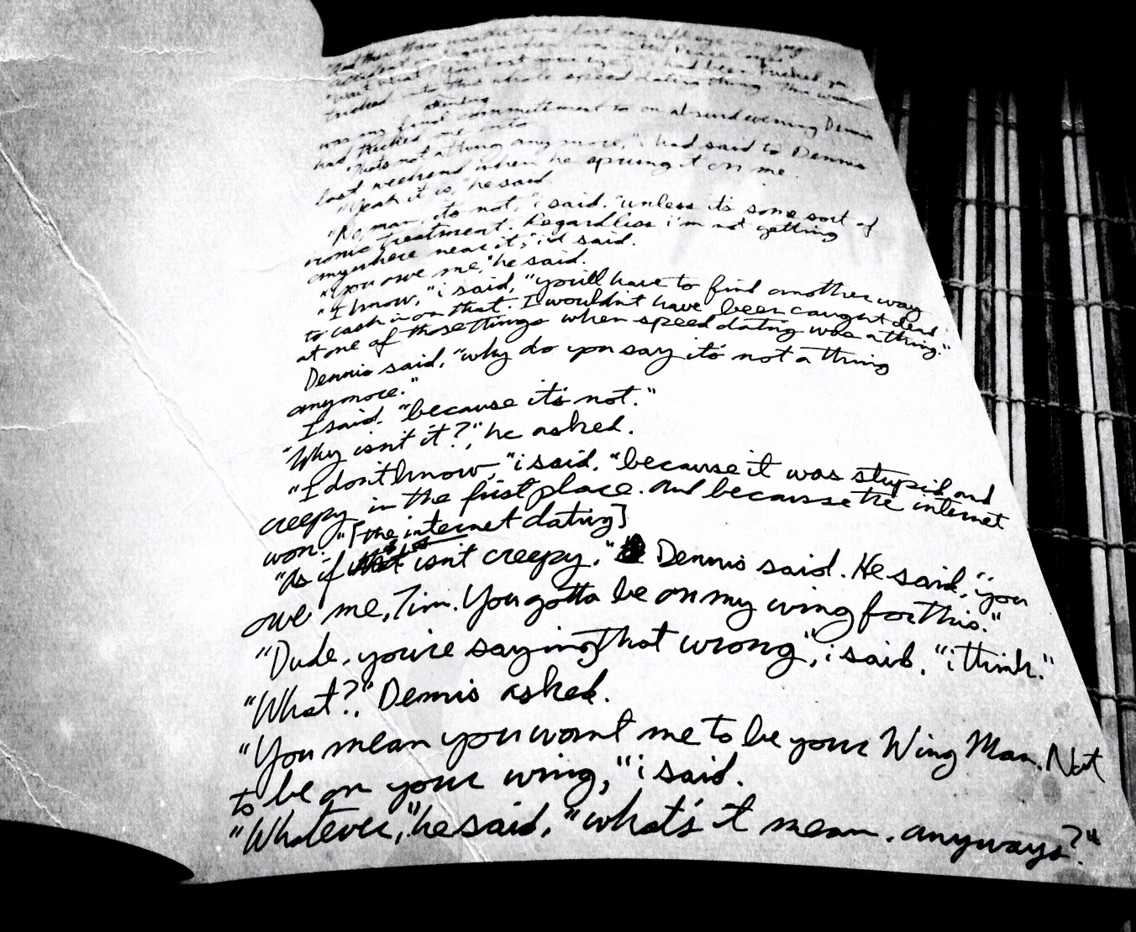 And then there was the time i lost my left eye in a
accident
"what what? You lost your eye?" had been tricked
tricked into this whole speed dating thing. This was
attending
was my final commitment to an absurd evening Dennis
had tricked me onto
"That's not a thing anymore," i had said to Dennis
last weekend when he sprung it on me.
"Yeah it is," he said.
"No, man, it's not," i said. "unless it's some sort of
ironic treatment. Regardless i'm not getting
anywhere near it," i'd said.
"You owe me," he said.
"I know," i said, "you'll have to find another way
to cash in on that. I wouldn't have been caught dead
at one of those things when speed dating was a thing."
Dennis said, "why do you say it's not a thing
anymore."
I said. "because it's not."
"Why isn't it?," he asked.
"I don't know," i said, "because it was stupid and
creepy in the first place. And because the internet
won." [the internet dating]
"As if that isn't creepy," Dennis said. He said, "you
owe me, Tim. You gotta be on my wing for this."
"Dude, you're saying that wrong," i said, "i think."
"What?," Dennis asked.
"You mean you want me to be your Wing Man. Not
to be on your wing," i said.
"Whatever," he said, "what's it mean, anyways?"